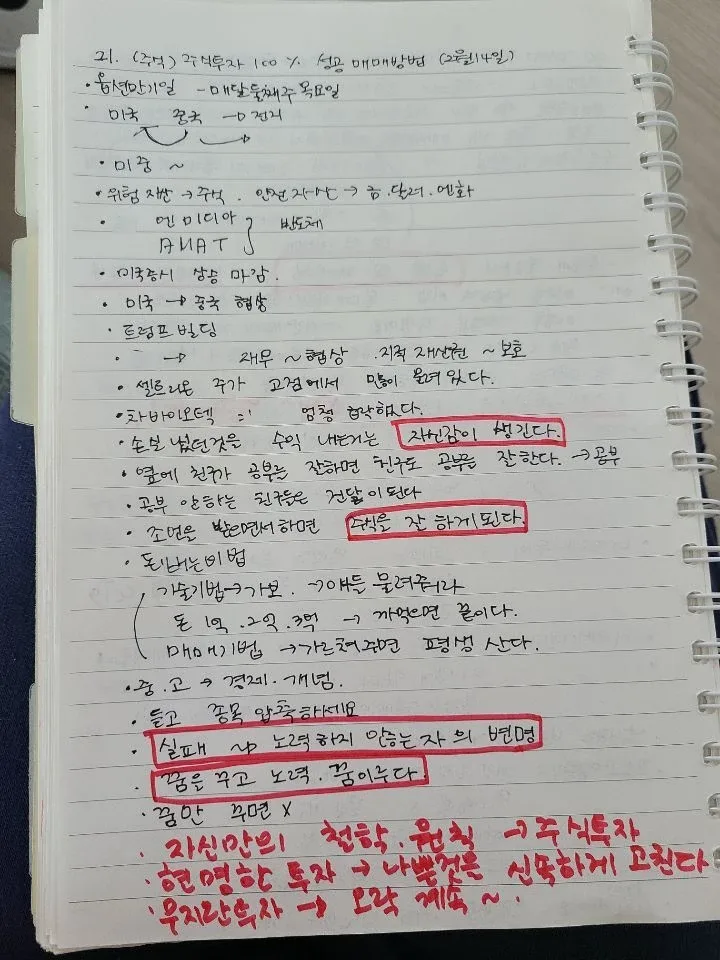 21. (주식) 주식투자 100% 성공 매매방법 (2월14일)
· 옵션만기일 - 매달 둘째주 목요일
· 미국 중국 → 전지
· 미중 ~
· 위험자산 → 주식. 안전자산 → 금.달러.엔화
· 엔미디아
AMAT } 반도체
· 미국증시 상승 마감.
· 미국 → 중국 협상
· 트럼프빌딩
· → 재무 ~ 협상 .지적 재산권 ~ 보호
· 셀트리온 주가 고점에서 많이 물려있다.
· 차바이오텍 :: 엄청 급락했다.
· 손실 났던것을 수익 내는거는 자신감이 생긴다.
· 옆에 친구가 공부를 잘하면 친구도 공부를 잘한다. → 공부
· 공부 안하는 친구들은 건달이된다
· 조언을 받으면서하면 주식을 잘 하게된다.
· 돈버는비법
기술기법→가보. →애들 물려줘라
돈 1억.2억.3억 → 까먹으면 끝이다.
매매기법 →가르쳐주면 평생 산다.
· 중.고 → 경제.개념.
· 들고 종목 압축하세요
· 실패 → 노력하지 않는자의 변명
· 꿈을 꾸고 노력.꿈이루다.
· 꿈만 꾸면 X
· 자신만의 철학.원칙 → 주식투자
· 현명한 투자 → 나쁜것은 신속하게 고친다
· 무지한투자 → 오락 계속 ~.